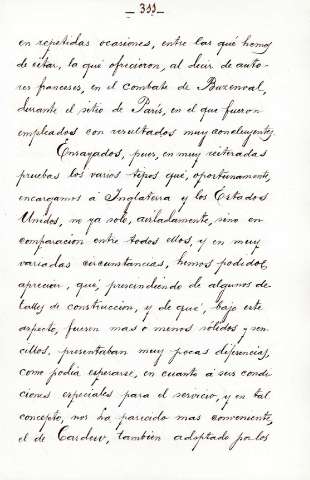 - 399 -
en repetidas ocasiones, entre las que hemos
de citar, la que ofrecieron, al decir de auto-
res franceses, en el combate de Buzenval,
durante el sitio de París, en el que fueron
empleados con resultados muy concluyentes.
Ensayados, pues, en muy reiteradas
pruebas los varios tipos que, oportunamente,
encargamos á Inglaterra y los Estados
Unidos, no ya solo, aisladamente, sino en
comparacion entre todos ellos, y en muy
variadas circunstancias, hemos podido
apreciar, que, prescindiendo de algunos de-
talles de construccion, y de que, bajo este
aspecto, fuesen mas o menos sólidos y sen-
cillos, presentaban muy pocas diferencias,
como podia esperarse, en cuanto á sus condi-
ciones especiales para el servicio, y en tal
concepto, nos ha parecido mas conveniente,
el de Cardew, tambien adoptado por los